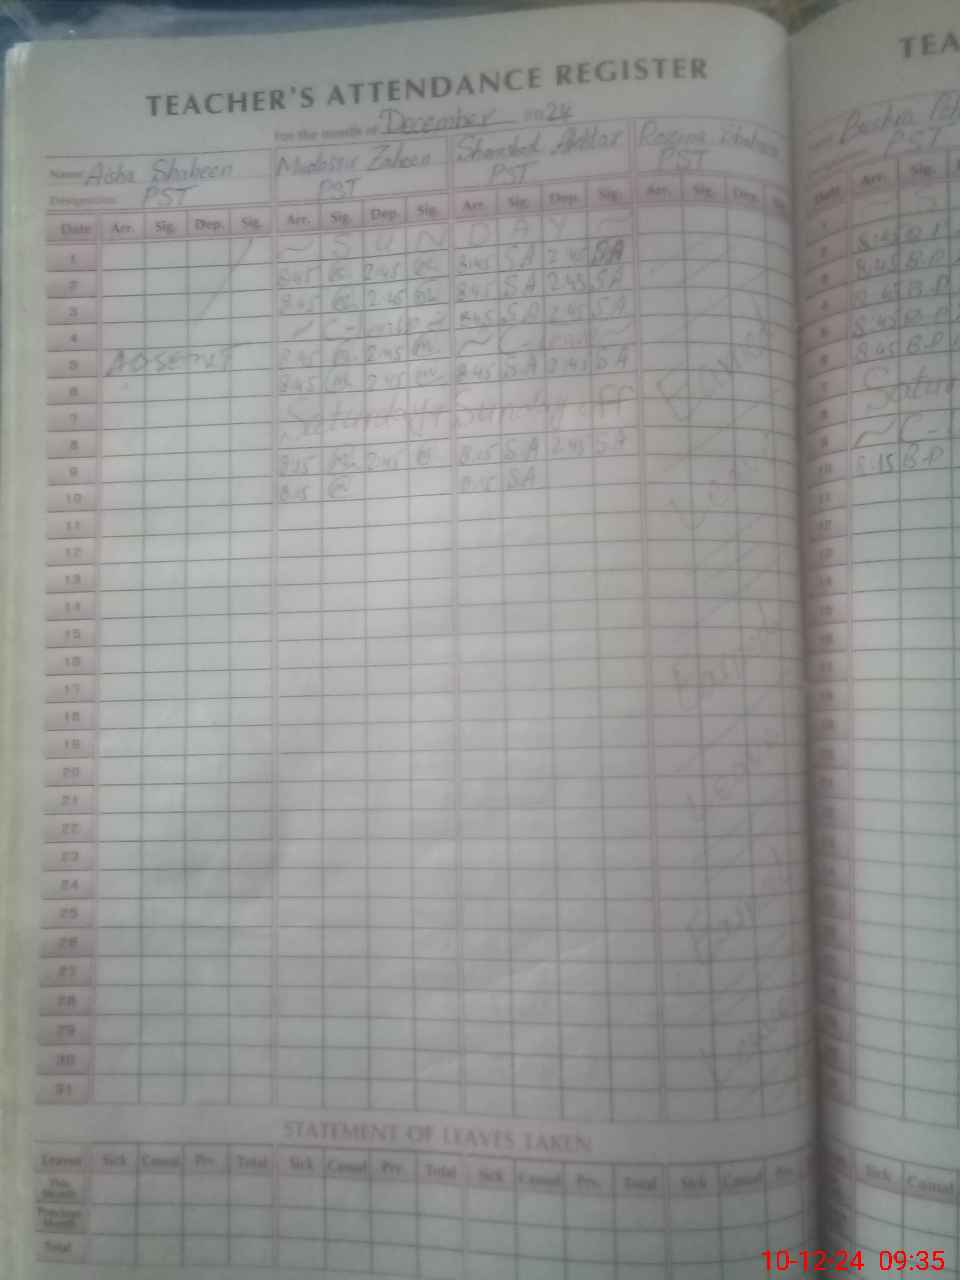 TEACHER'S ATTENDANCE REGISTER
TEA
For the month of December 2024
Name Aisha Shaheen Shamshad Akhtar
Designation PST PST PST PST PST
Date Arr. Sig. Dep. Sig. Arr. Sig. Dep. Sig. Arr. Sig. Dep. Sig. Arr. Sig. Dep. Date Arr. Sig.
1 ~ S U N D A Y ~ S
2 8:45 2:45 8:45 SA 2:45 SA 8:45 B.P
3 8:45 2:45 8:45 SA 2:45 SA 8:45 B.P
4 ~ C-leave 8:45 SA 2:45 SA B.P
5 Absent 8:45 2:45 ~ C-leave ~ 8:45 B.P
6 8:45 2:45 8:45 SA 2:45 SA 8:45 B.P
7 Saturday Sunday off Satur
8
9 8:15 2:45 8:15 SA 2:45 SA ~ C-
10 8:15 8:15 SA 8:15 B.P
11
12
13
14
15
16
17
18
19
20
21
22
23
24
25
26
27
28
29
30
31
Earned
Leave
Earned
Leave
Earned
Leave
STATEMENT OF LEAVES TAKEN
Leaves Sick Casual Prv. Total Sick Casual Prv. Total Sick Casual Prv. Total Sick Casual Prv. Sick Casual
This Month
Previous Month
Total
10-12-24 09:35